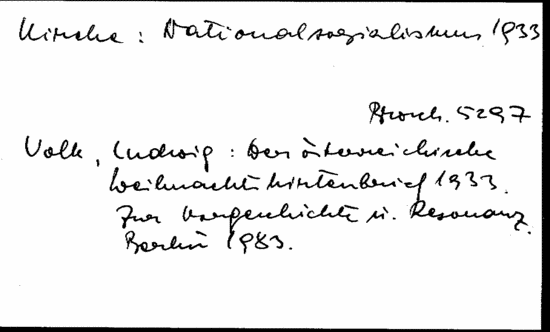 Kirche : Nationalsozialismus 1933
Brosch. 5297
Volk, Ludwig : Der österreichische
Weihnachtshirtenbrief 1933.
Zur Vorgeschichte u. Resonanz.
Berlin 1983.